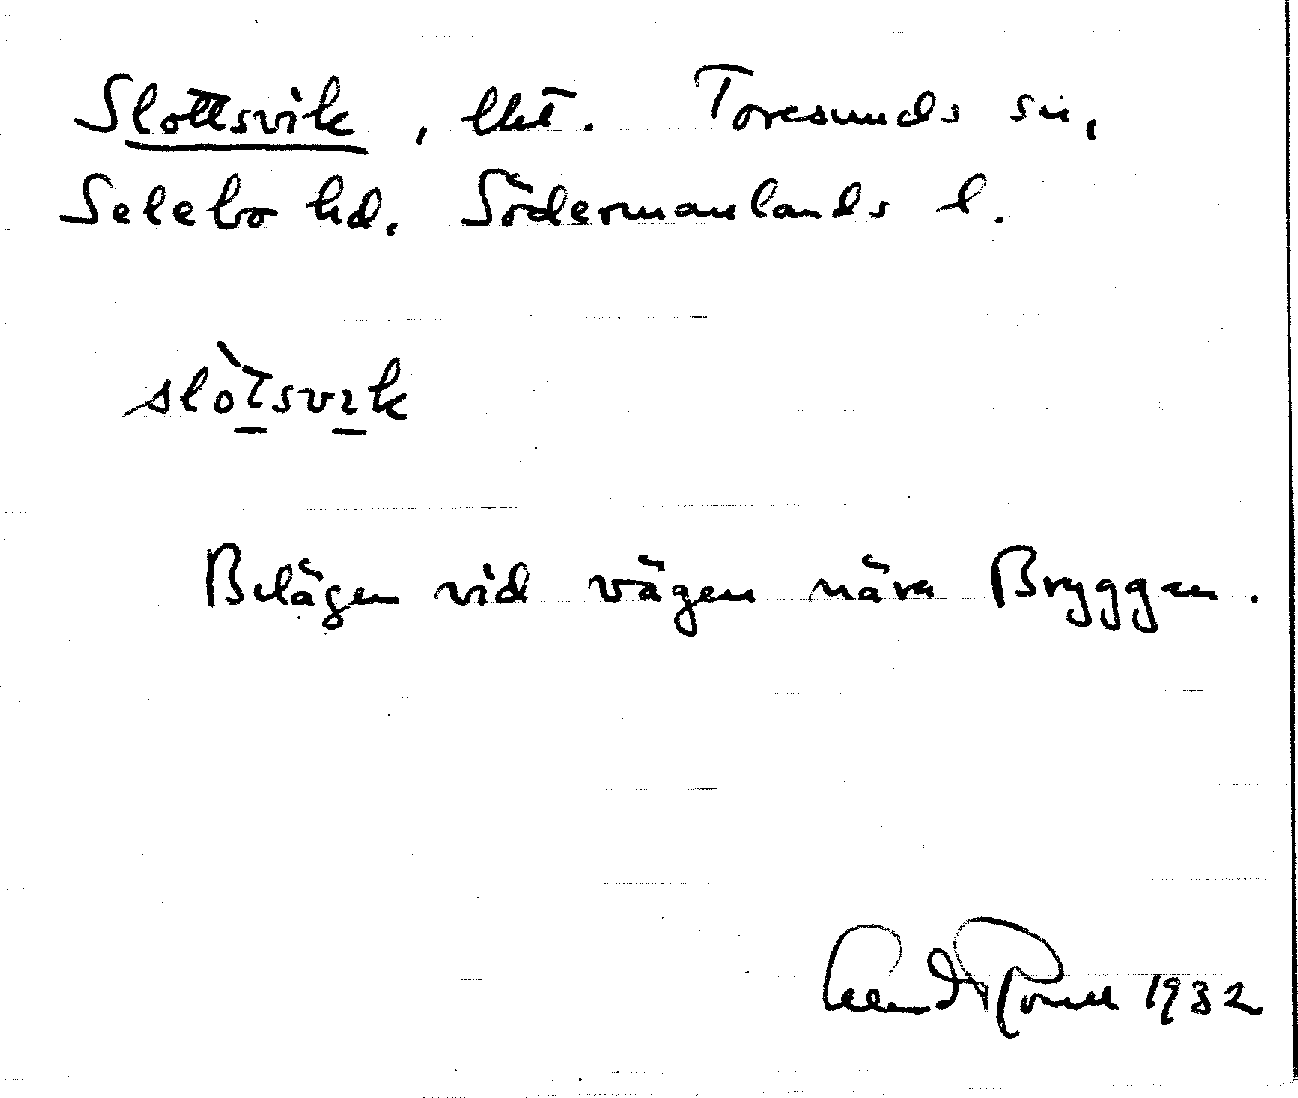 Slottsvik, lht. Toresunds sn,
Selebo hd. Södermanlands l.
slòtsvik
Belägen vid vägen nära Bryggan.
1932